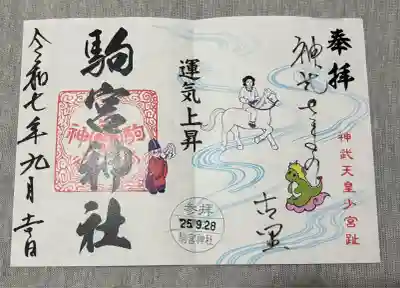 奉拝
神武さまの
古里
神武天皇少宮趾
運気上昇
駒宮神社
参拝
'25.9.28
駒宮神社
令和七年九月吉日